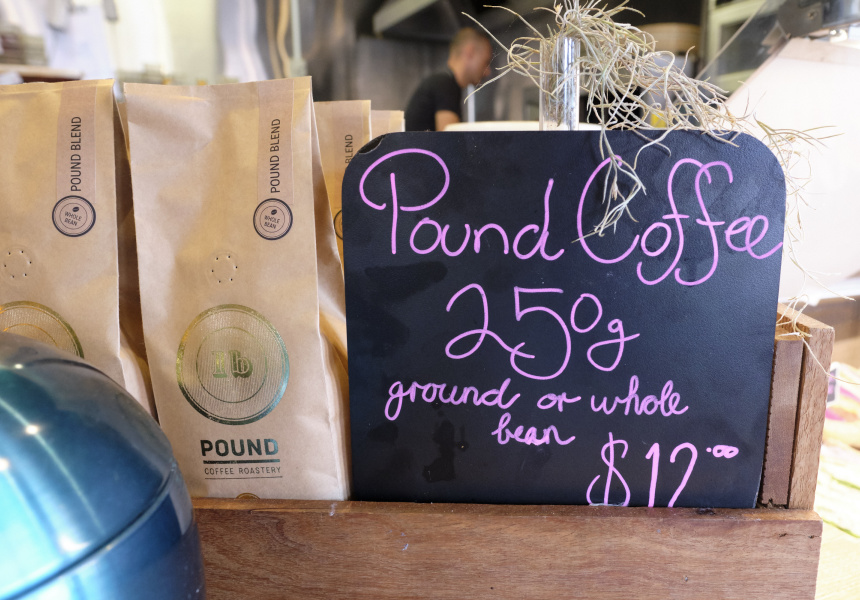 POUND BLEND
WHOLE
BEAN
POUND BLEND
WHOLE
BEAN
lb
POUND
COFFEE ROASTERY
Pound Coffee
250g
ground or whole
bean
$12.00